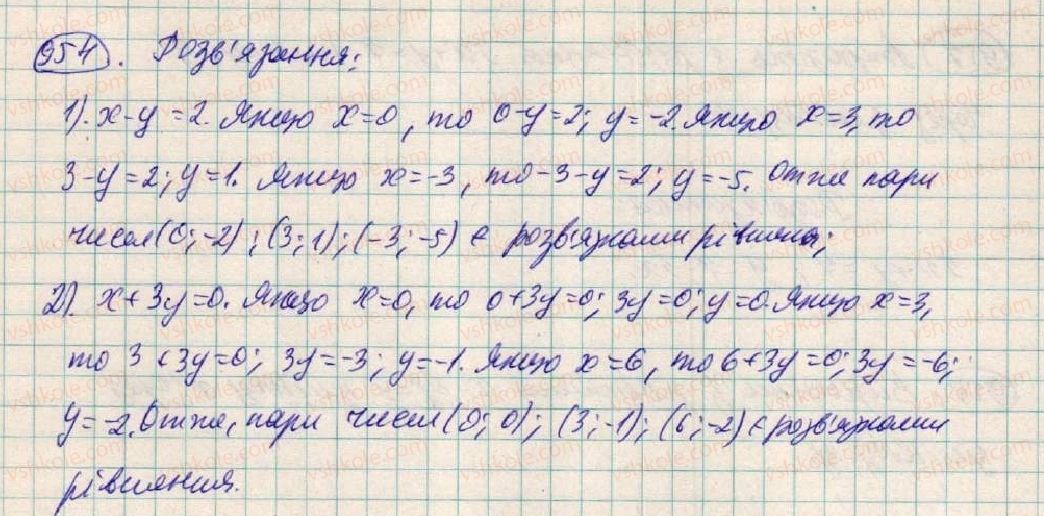 954. Розв'язання:
1). x-y=2. Якщо x=0, то 0-y=2; y=-2. Якщо x=3, то
3-y=2; y=1. Якщо x=-3, то -3-y=2; y=-5. Отже пари
чисел (0;-2); (3;1); (-3;-5) є розв'язками рівняння;
2). x+3y=0. Якщо x=0, то 0+3y=0; 3y=0; y=0. Якщо x=3,
то 3+3y=0; 3y=-3; y=-1. Якщо x=6, то 6+3y=0; 3y=-6;
y=-2. Отже, пари чисел (0;0); (3;-1); (6;-2) є розв'язками
рівняння.